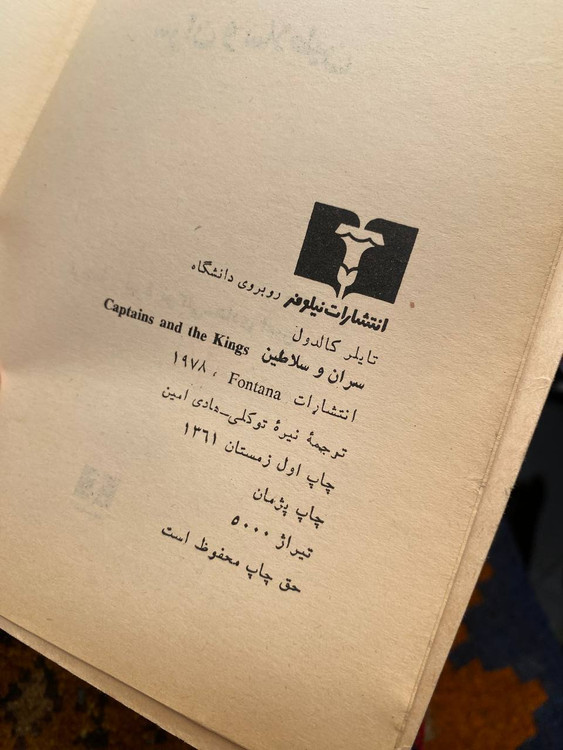 انتشارات نیلوفر روبروی دانشگاه
تایلر کالدول
سران و سلاطین Captains and the Kings
انتشارات Fontana ، ۱۹۷۸
ترجمهٔ نیرهٔ توکلی_هادی امین
چاپ اول زمستان ۱۳۶۱
چاپ پژمان
تیراژ ۵۰۰۰
حق چاپ محفوظ است